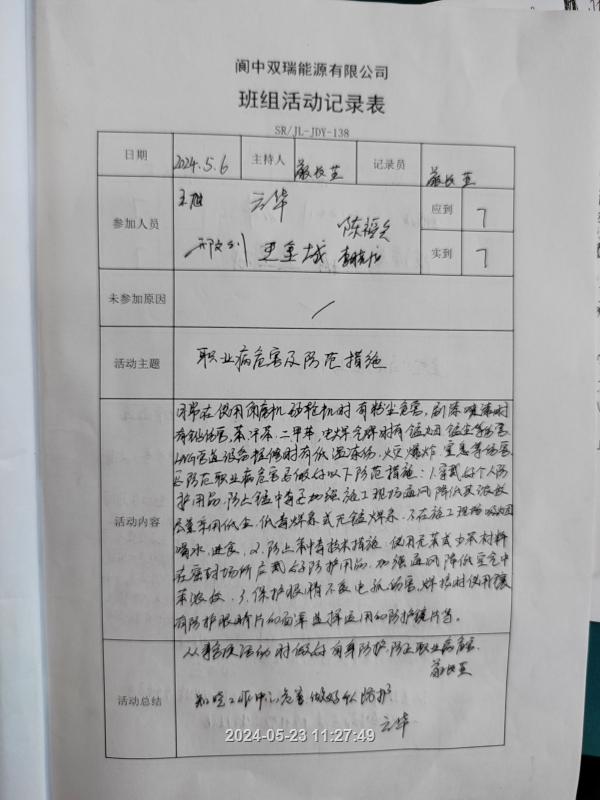 阆中双瑞能源有限公司
班组活动记录表
SR/JL-JDY-138
日期 2024.5.6 主持人 记录员
参加人员 王旭 云华 应到 7
实到 7
未参加原因 /
活动主题 职业病危害及防范措施
活动内容
日常在使用角磨机 砂轮机时有粉尘危害，刷漆喷漆时
有 伤害，苯 甲苯、二甲苯，电焊气焊时有锰烟 锰尘等伤害
LNG管道设备检修时有低温冻伤，火灾 爆炸 窒息等伤害
防范职业病危害 做好以下防范措施：1.穿戴好个人防
护用品，防止锰中毒 加强施工现场通风 降低其浓度
尽量采用低尘，低毒焊条或无锰焊条，不在施工现场吸烟
喝水，进食，2.防止苯中毒技术措施，使用无苯或少苯材料
在密封场所应戴好防护用品，加强通风降低空气中
苯浓度，3.保护眼睛不受电弧伤害，焊接时使用镶
有防护眼 片的面罩 选择适用的防护镜片等。
活动总结
时做好 防护 防止职业病危害
知晓工作中心危害 做好个人防护
云华
2024-05-23 11:27:49